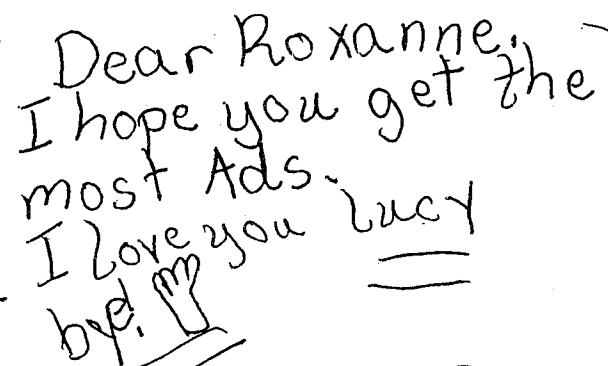 Dear Roxanne.
I hope you get the
most Ads.
I love you Lucy
bye!